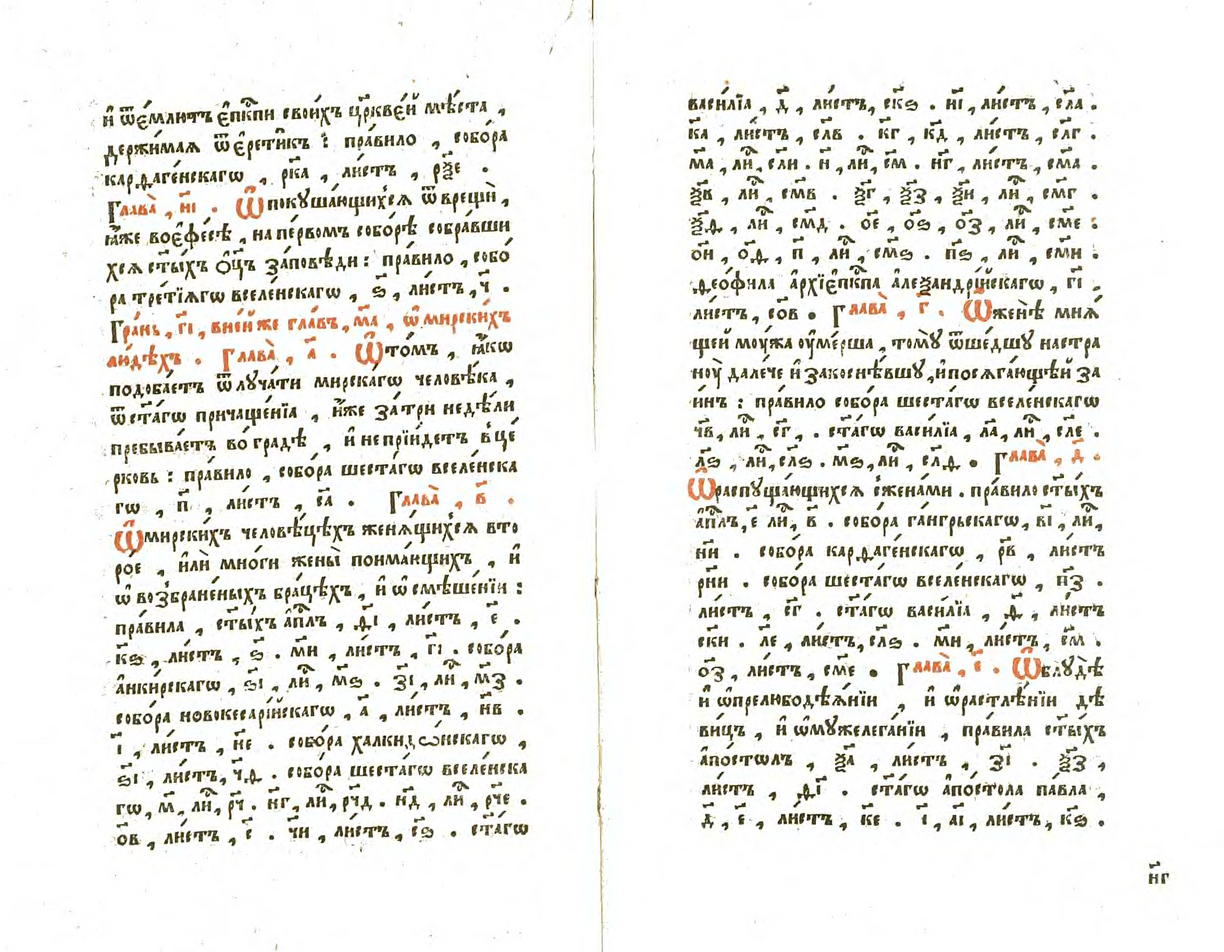 и҆ ѿе́млютъ є҆п҃кпи свои́хъ цр҃кве́й мѣ́ста ,
держи́маѧ ѿ є҆рети̑къ : пра́вило , собо́ра
карѳаге́нскагѡ , р҃ка , ли́стъ , р҃ѯе .
Глава̀ , н҃і . Ѿ покꙋша́ющихсѧ ѿврещѝ ,
ꙗ҆́же во є҆фе́сѣ , на пе́рвомъ собо́рѣ собра́вши
хсѧ ст҃ы́хъ ѻ҆ц҃ъ за́повѣди : пра́вило , собо́
ра тре́тїѧгѡ вселе́нскагѡ , ѕ҃ , ли́стъ , ч҃ .
Гра́нь , г҃і , в не́й же гла́въ , м҃а , ѡ҆ мирски́хъ
лю́дѣхъ . Глава̀ , а҃ . Ѡ҆ то́мъ , ꙗ҆́кѡ
подоба́етъ ѿлꙋча́ти мирска́гѡ человѣ́ка ,
ѿ ст҃а́гѡ причаще́нїѧ , и҆́же за́ три недѣ́ли
пребыва́етъ во гра́дѣ , и҆ не прїи́детъ в це́
рковь : пра́вило , собо́ра шеста́гѡ вселе́нска
гѡ , п҃ , ли́стъ , с҃а . Глава̀ , в҃ .
Ѡ҆ мирски́хъ человѣ́цѣхъ женѧ́щихсѧ вто
ро́е , и҆лѝ мно́ги жены̀ пои́мающихъ , и҆
ѡ҆ возбране́ныхъ бра́цѣхъ , и҆ ѡ҆ смѣше́нїи :
пра́вила , ст҃ы́хъ а҆пл҃ъ , ѳ҃і , ли́стъ , є҃ .
к҃ѕ , ли́стъ , ѕ҃ . м҃и , ли́стъ , г҃і . собо́ра
а҆нки́рскагѡ , ѕ҃і , ли́ , м҃ѕ . з҃і , ли́ , м҃з .
собо́ра новокесарі́йскагѡ , а҃ , ли́стъ , н҃в .
і҃ , ли́стъ , н҃е . собо́ра халкидѡ́нскагѡ ,
ѕ҃і , ли́стъ , ч҃ѳ . собо́ра шеста́гѡ вселе́нска
гѡ , м҃ , ли́ , р҃ч . н҃г , ли́ , р҃чд . н҃д , ли́ , р҃че .
ѻ҃в , ли́стъ , с҃ . ч҃и , ли́стъ , с҃ѕ . ст҃а́гѡ
васи́лїа , д҃ , ли́стъ , с҃кѕ . н҃і , ли́стъ , с҃ла .
к҃а , ли́стъ , с҃лв . к҃г , к҃д , ли́стъ , с҃лг .
м҃а , ли́ , с҃ли . н҃ , ли́ , с҃м . н҃г , ли́стъ , с҃ма .
ѯ҃в , ли́ , с҃мв . ѯ҃г , ѯ҃з , ѯ҃и , ли́ , с҃мг .
ѯ҃ѳ , ли́ , с҃мд . ѻ҃е , ѻ҃ѕ , ѻ҃з , ли́ , с҃ме :
ѻ҃и , ѻ҃ѳ , п҃ , ли́ , с҃мѕ . п҃ѕ , ли́ , с҃ми .
ѳео́фила а҆рхїєп҃кпа а҆леѯандрі́йскагѡ , г҃і ,
ли́стъ , с҃ѻв . Глава̀ , г҃ . Ѡ҆ женѣ̀ мнѧ́
щей мꙋ́жа оу҆ме́рша , томꙋ̀ ѿше́дшꙋ на стра
нꙋ̀ дале́че и҆ закоснѣ́вшꙋ , и҆ посѧга́ющѣй за
и҆́нъ : пра́вило собо́ра шеста́гѡ вселе́нскагѡ
ч҃в , ли́ , с҃г . ст҃а́гѡ васи́лїа , л҃а , ли́ , с҃ле .
л҃ѕ , ли́ , с҃лѕ . м҃ѕ , ли́ , с҃лѳ . Глава̀ , д҃ .
Ѡ҆ распꙋща́ющихсѧ с жена́ми . пра́вило ст҃ы́хъ
а҆пл҃ъ , є҃ ли́ , в҃ . собо́ра га́нгрьскагѡ , в҃і , ли́ ,
н҃и . собо́ра карѳаге́нскагѡ , р҃в , ли́стъ
р҃ни . собо́ра шеста́гѡ вселе́нскагѡ , п҃з .
ли́стъ , с҃г . ст҃а́гѡ васи́лїа , ѳ҃ , ли́стъ
с҃ки . л҃е , ли́стъ , с҃лѕ . м҃и , ли́стъ , с҃м .
ѻ҃з , ли́стъ , с҃ме . Глава̀ , є҃ . Ѡ҆ блꙋ́дѣ
и҆ ѡ҆ прелюбодѣѧ́нїи , и҆ ѡ҆ растлѣ́нїи дѣ
ви́цъ , и҆ ѡ҆ мꙋжелега́нїи , пра́вила ст҃ы́хъ
а҆по́столъ , ѯ҃а , ли́стъ , з҃і . ѯ҃з ,
ли́стъ , ѳ҃і . ст҃а́гѡ а҆по́стола па́вла ,
д҃ , є҃ , ли́стъ , к҃е . і҃ , а҃і , ли́стъ , к҃ѕ .
н҃г